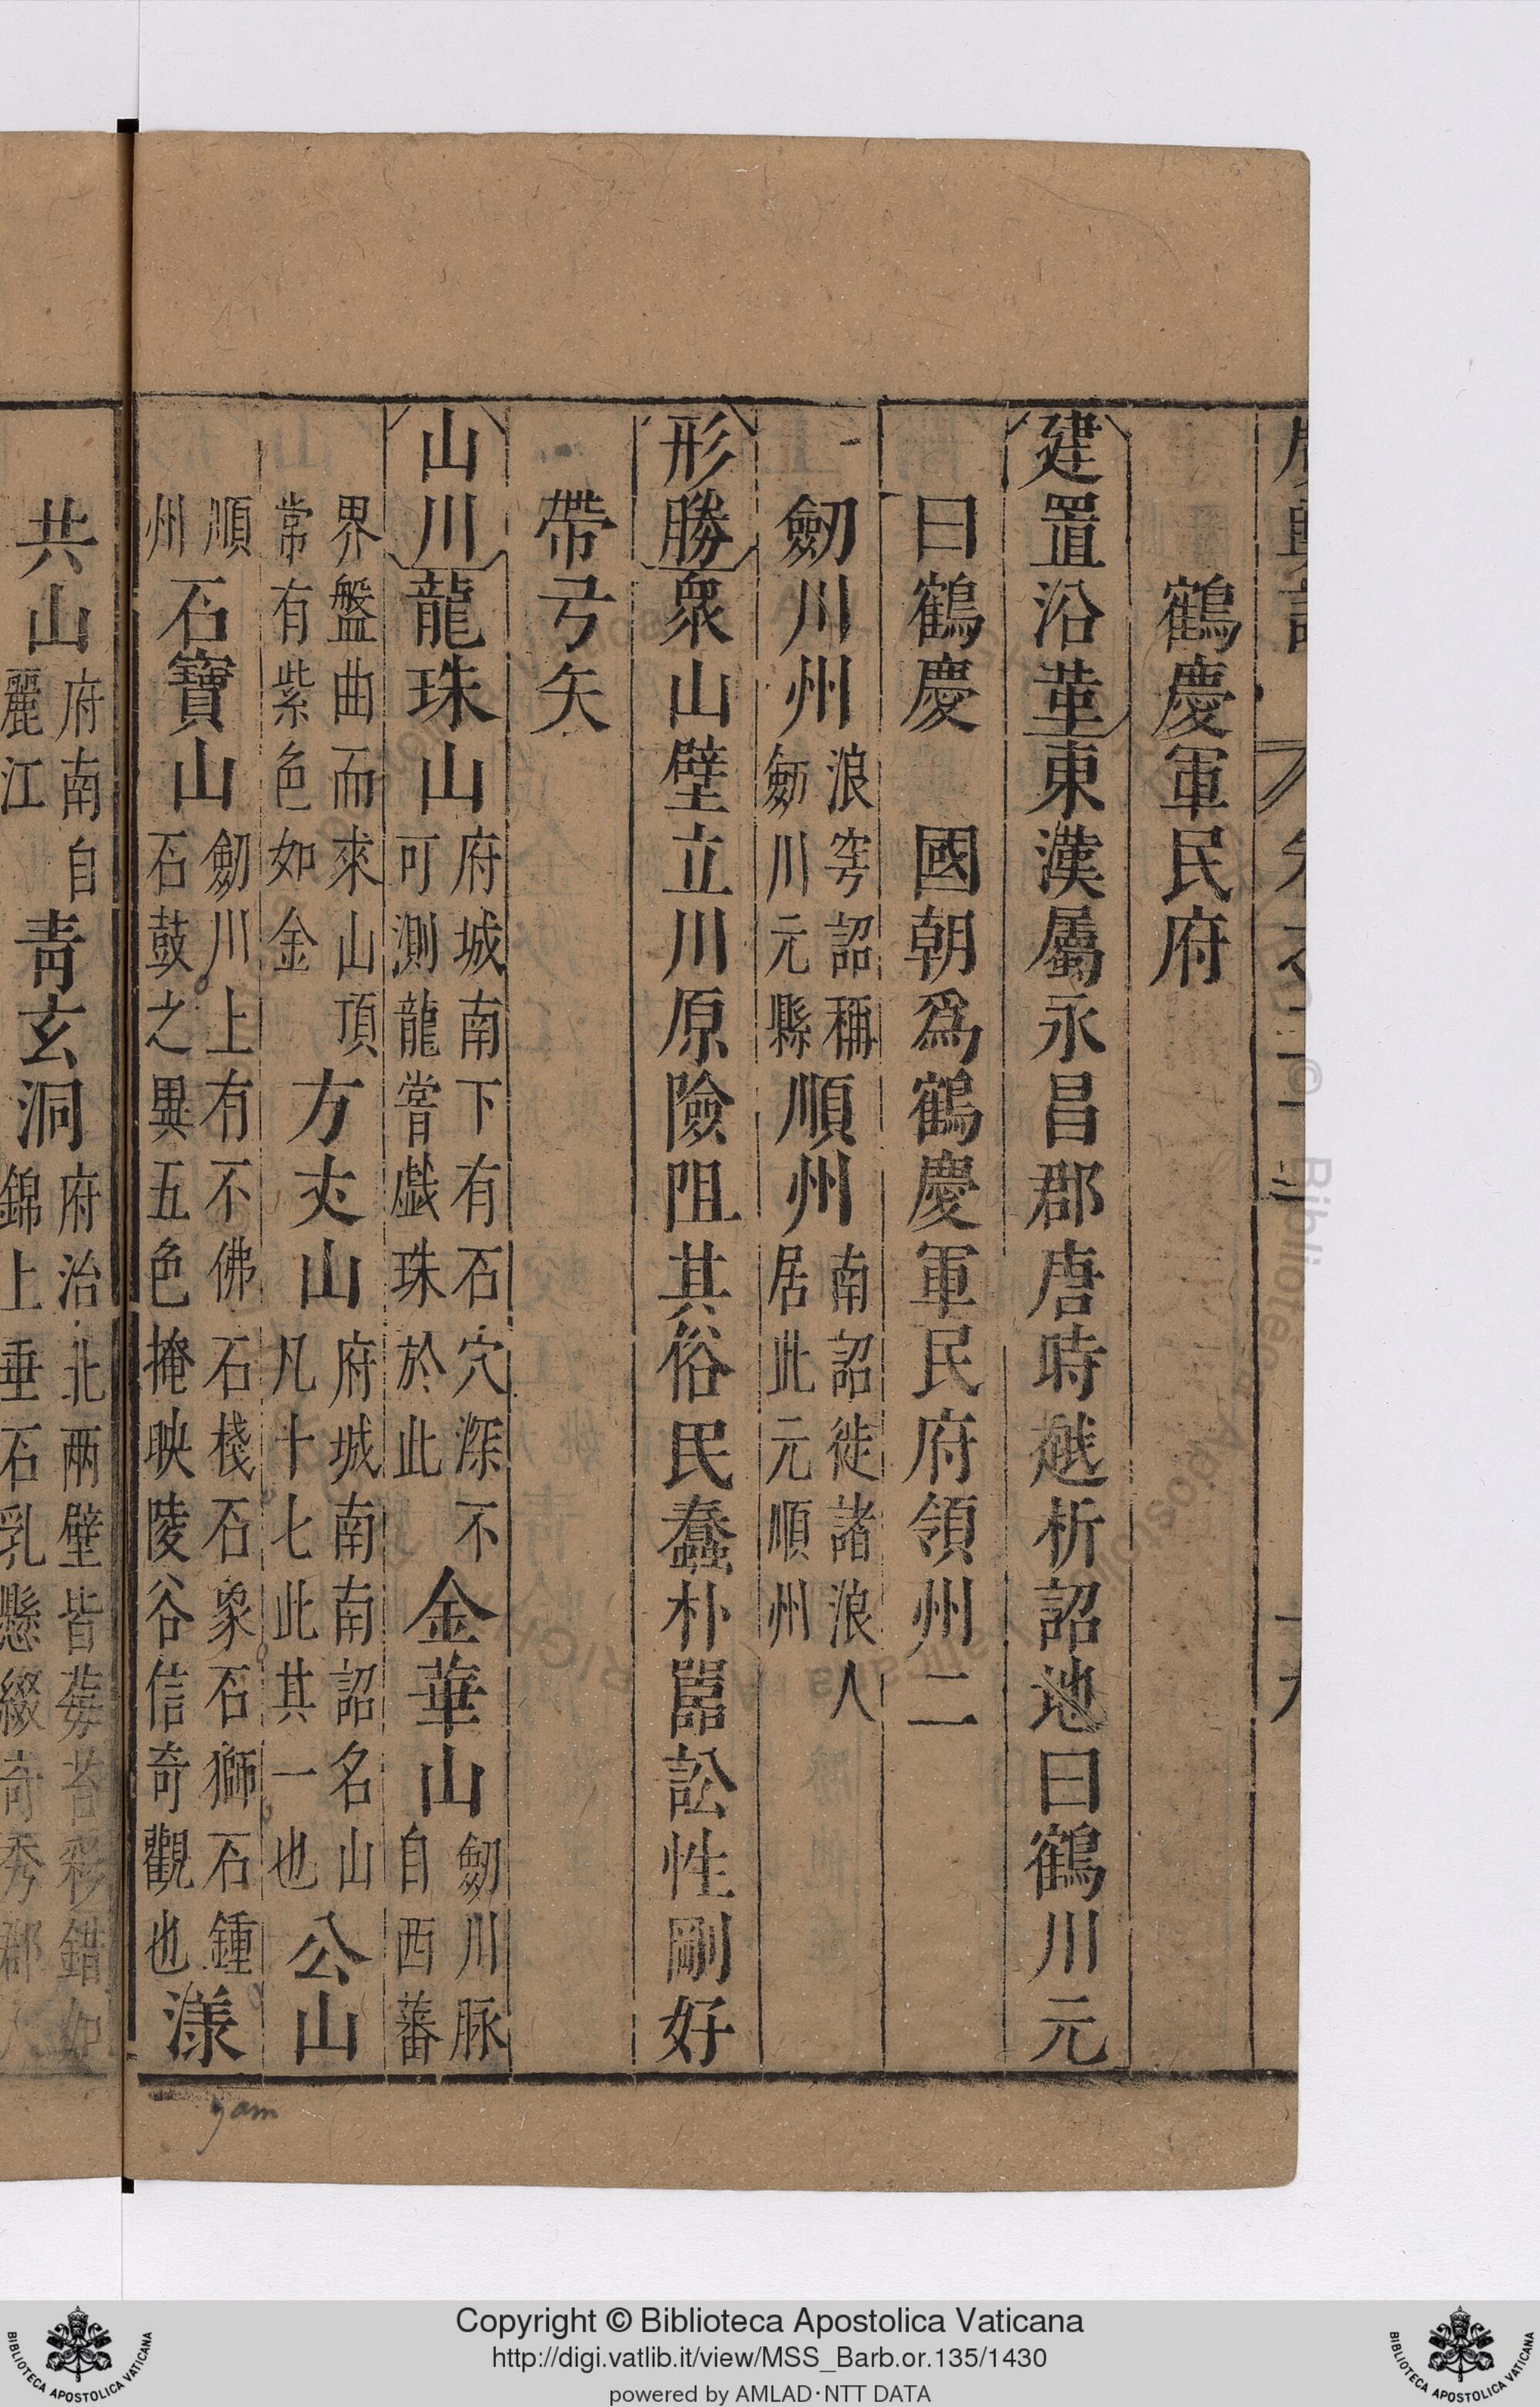 鶴慶軍民府
建置沿革東漢屬永昌郡唐時越析詔地曰鶴川元
曰鶴慶 國朝爲鶴慶軍民府領州二
劒川州浪穹詔稱劒川元縣順州南詔徙諸浪人居此元順州
形勝衆山壁立川原險阻其俗民蠢朴嚚訟性剛好
帶弓矢
山川龍珠山府城南下有石穴深不可測龍嘗戯珠於此金華山劒川脉自西蕃
界盤曲而來山頂常有紫色如金方丈山府城南南詔名山凡十七此其一也公山
順州石寶山劒川上有不佛石棧石象石獅石鍾石鼓之異五色掩映陵谷信奇觀也漾
共山府南自麗江青玄洞府治北兩壁皆莓苔彩錯如錦上垂石乳懸綴奇秀郡
yam
Copyright © Biblioteca Apostolica Vaticana
http://digi.vatlib.it/view/MSS_Barb.or.135/1430
powered by AMLAD·NTT DATA
BIBLIOTECA APOSTOLICA VATICANA
BIBLIOTECA APOSTOLICA VATICANA